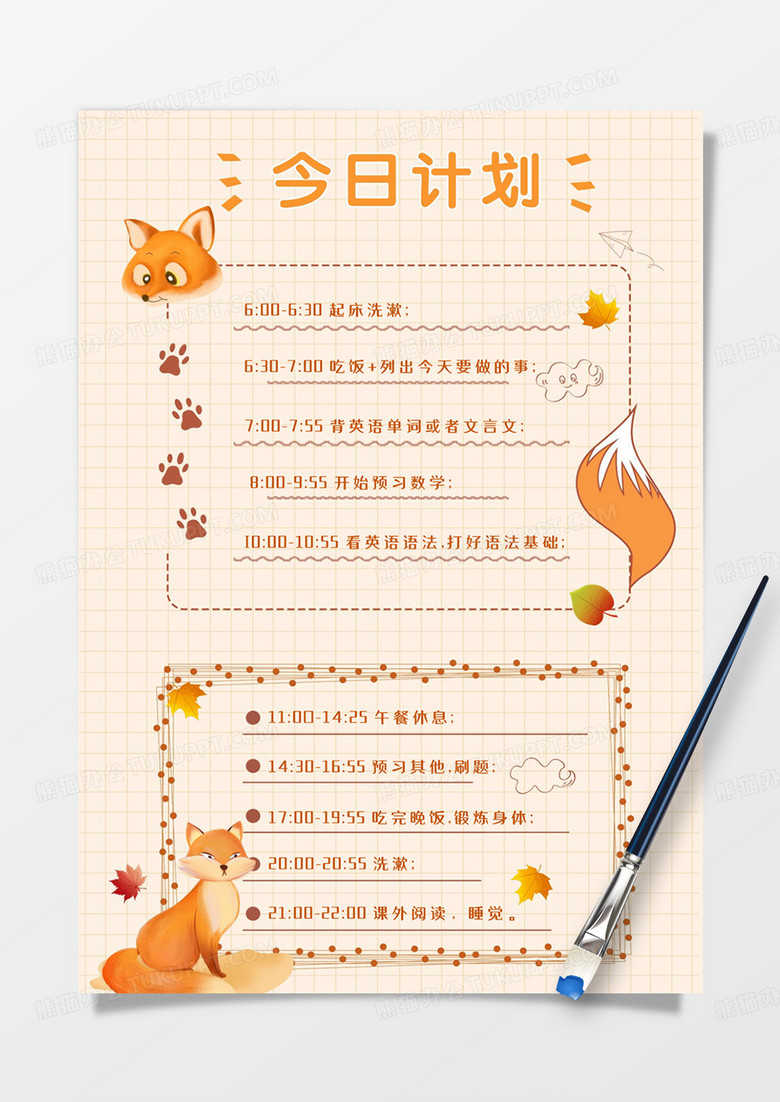 今日计划
6:00-6:30 起床洗漱;
6:30-7:00 吃饭+列出今天要做的事;
7:00-7:55 背英语单词或者文言文;
8:00-9:55 开始预习数学;
10:00-10:55 看英语语法,打好语法基础;
11:00-14:25 午餐休息;
14:30-16:55 预习其他,刷题;
17:00-19:55 吃完晚饭,锻炼身体;
20:00-20:55 洗漱;
21:00-22:00 课外阅读，睡觉。
熊猫办公 TUKUPPT.COM